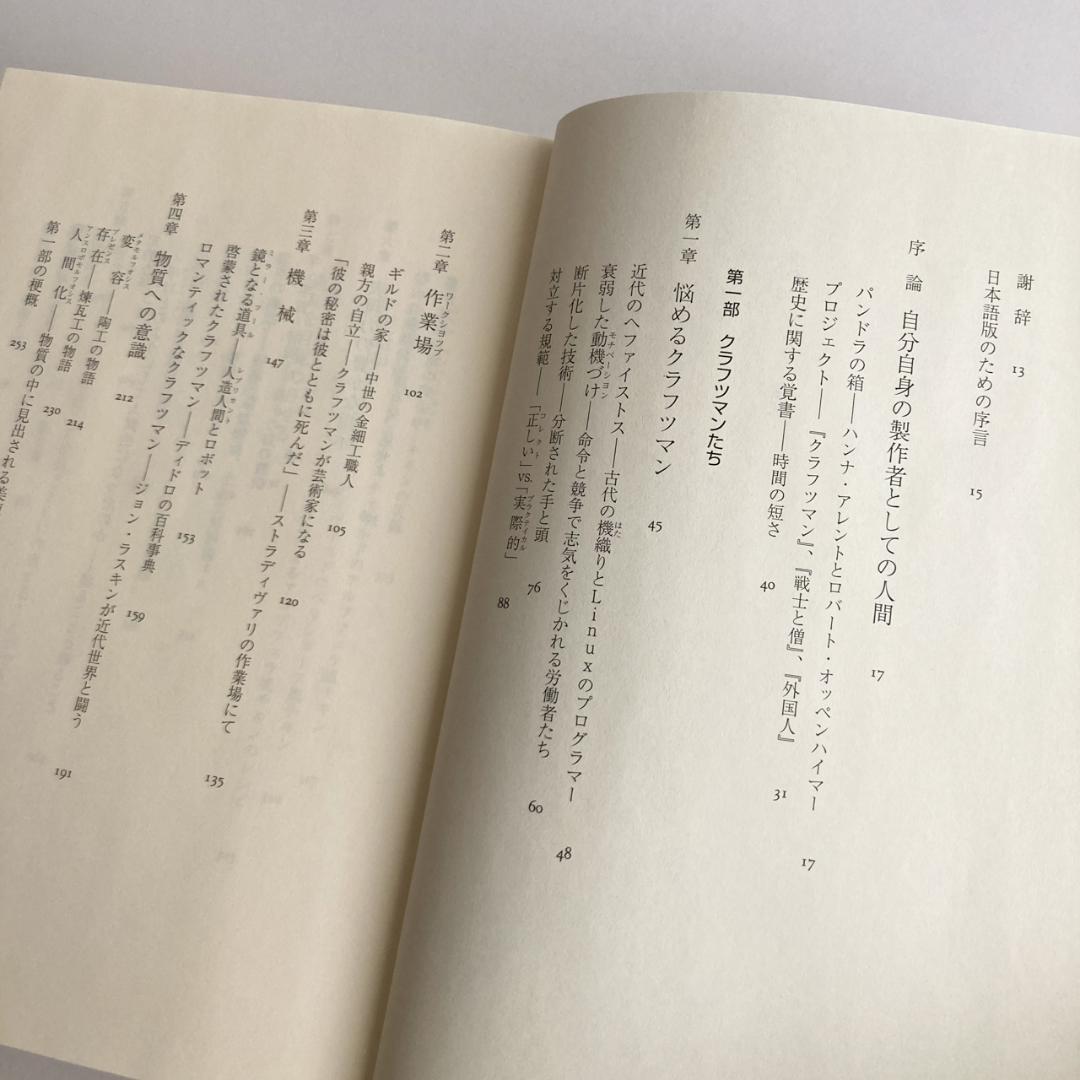 謝　辞　13
日本語版のための序言　15
序　論　自分自身の製作者としての人間　17
パンドラの箱――ハンナ・アレントとロバート・オッペンハイマー　17
プロジェクト――『クラフツマン』、『戦士と僧』、『外国人』　31
歴史に関する覚書――時間の短さ　40
第一部　クラフツマンたち
第一章　悩めるクラフツマン　45
近代のヘファイストス――古代の機織りとLinuxのプログラマー　48
はた
衰弱した動機づけ――命令と競争で志気をくじかれる労働者たち　60
モチベーション
断片化した技術――分断された手と頭　76
対立する規範――「正しい」vs.「実際的」　88
コレクト
プラクティカル
第二章　作業場　102
ワークショップ
ギルドの家――中世の金細工職人　105
親方の自立――クラフツマンが芸術家になる　120
「彼の秘密は彼とともに死んだ」――ストラディヴァリの作業場にて　135
第三章　機　械　147
鏡となる道具――人造人間とロボット　153
ミラー・ツール
レプリカント
啓蒙されたクラフツマン――ディドロの百科事典　159
ロマンティックなクラフツマン――ジョン・ラスキンが近代世界と闘う　191
第四章　物質への意識　212
変　容――陶工の物語　214
メタモルフォシス
存　在――煉瓦工の物語　230
プレゼンス
人　間　化――物質の中に見出される美
アンスロポモルフォシス
第一部の梗概　253